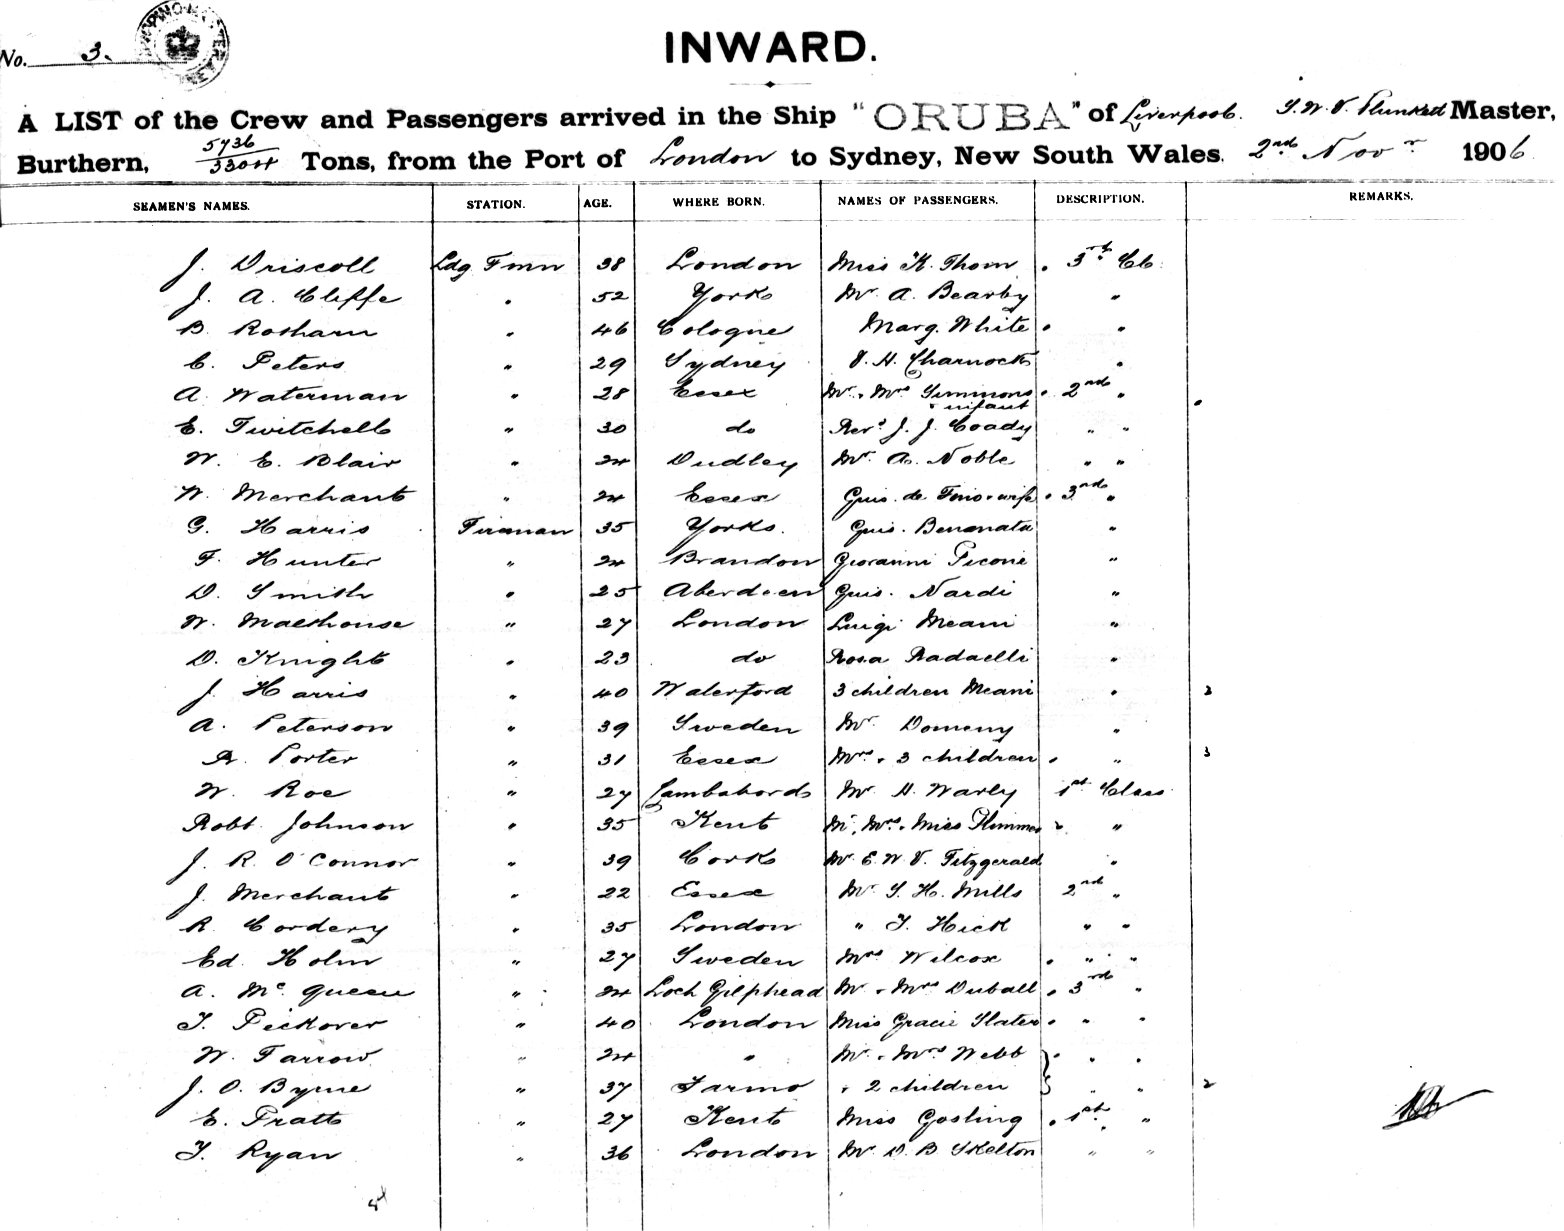 No. 3.
INWARD.
A LIST of the Crew and Passengers arrived in the Ship "ORUBA" of Liverpool. Master,
Burthern, 5736/3304 Tons, from the Port of London to Sydney, New South Wales. 2nd Novr 1906
SEAMEN'S NAMES. STATION. AGE. WHERE BORN. NAMES OF PASSENGERS. DESCRIPTION. REMARKS.
J. Driscoll Ldg Fmn 38 London Miss K. Thom . 3rd Cl.
J. A. Cliffe " 52 Yorks Mr A. Bearby "
B. Rotham " 46 Cologne Marg. White . "
C. Peters " 29 Sydney V. H. Charnock "
A. Waterman " 28 Essex Mr & Mrs Simmons . 2nd "
& infant
E. Twitchell " 30 do Revd J. J. Coady " "
W. E. Blair " 24 Dudley Mr A. Noble " "
W. Merchant " 24 Essex Guis. de & wife . 3rd "
G. Harris Fireman 35 Yorks. Guis. Benonata "
F. Hunter " 24 Brandon Giovanni Picone "
D. Smith " 25 Aberdeen Guis. Nardi "
W. Malthouse " 27 London Luigi Meani "
D. Knight " 23 do Rosa Radaelli "
J. Harris " 40 Waterford 3 children Meani " 2
A. Peterson " 39 Sweden Mr Domeny "
R. Porter " 31 Essex Mrs & 3 children . " 3
W. Roe " 27 Mr H. Warly 1st Class
Robt. Johnson " 35 Kent Mr, Mrs & Miss Plimmer "
J. R. O'Connor " 39 Cork Mr E. W. V. Fitzgerald "
J. Merchant " 22 Essex Mr S. H. Mills 2nd "
R. Cordery " 35 London " T. Hick " "
Ed. Holm " 27 Sweden Mrs Wilcox . " "
A. McQueen " 24 Loch Gilphead Mr & Mrs Duball . 3rd "
T. Pickover " 40 London Miss Gracie Slater . " "
W. Farrow " 24 " Mr & Mrs Webb } . " "
J. O. Byrne " 37 & 2 children " " 2
E. Pratt " 27 Kent Miss Gosling . 1st "
T. Ryan " 36 London Mr D. B Skelton " "